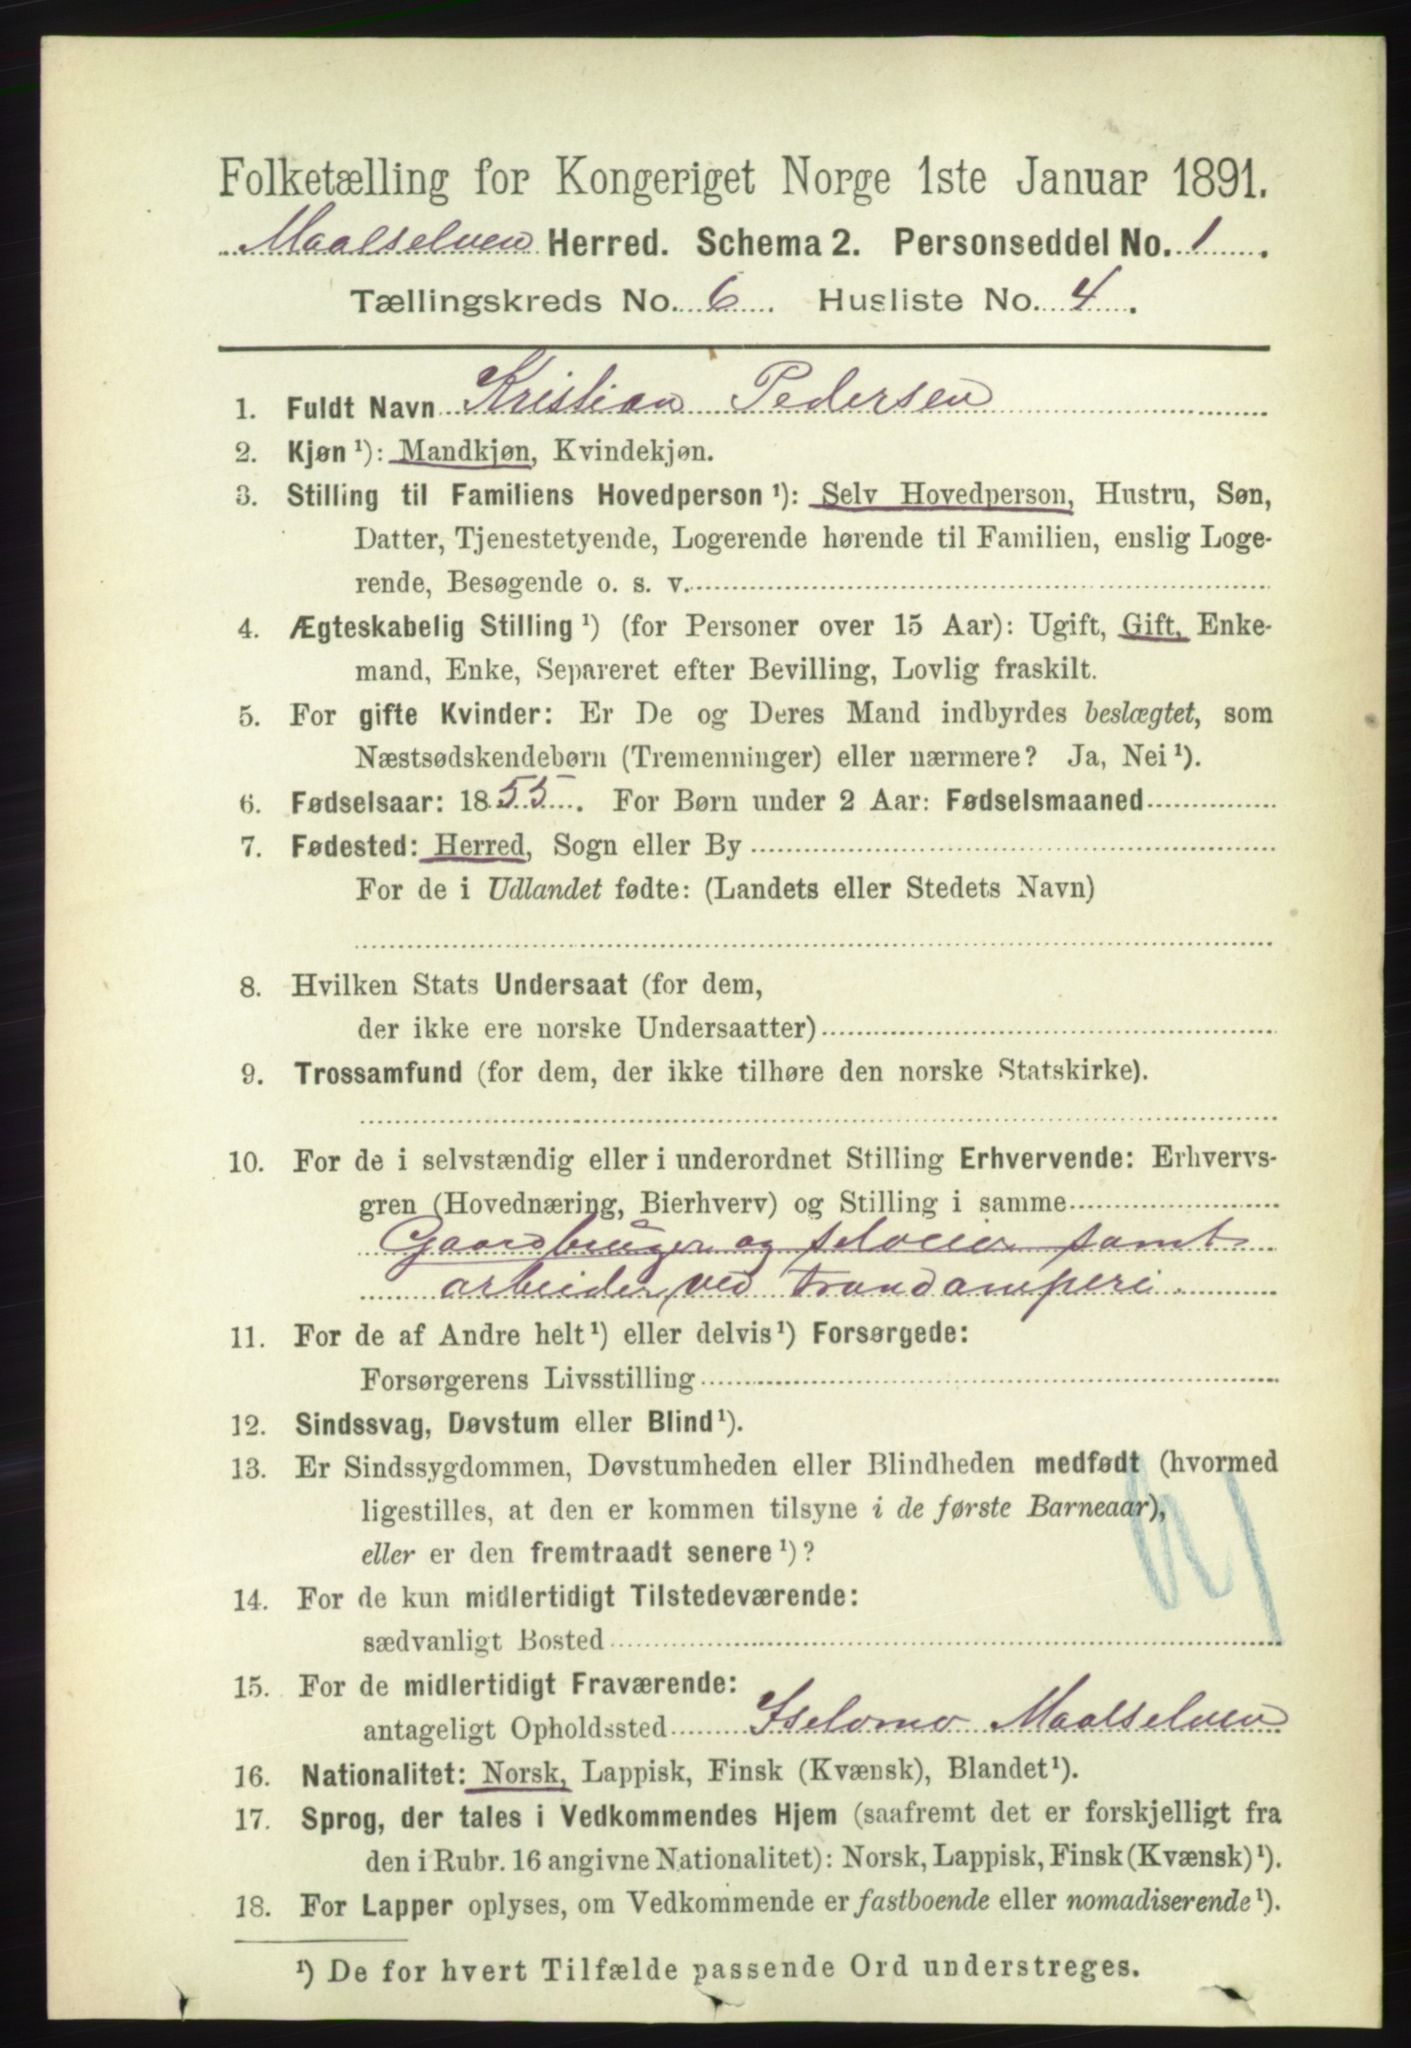 Folketælling for Kongeriget Norge 1ste Januar 1891.
Maalselven Herred. Schema 2. Personseddel No. 1.
Tællingskreds No. 6. Husliste No. 4.
1. Fuldt Navn Kristian Pedersen
2. Kjøn ¹): Mandkjøn, Kvindekjøn.
3. Stilling til Familiens Hovedperson ¹): Selv Hovedperson, Hustru, Søn,
Datter, Tjenestetyende, Logerende hørende til Familien, enslig Loge-
rende, Besøgende o. s. v.
4. Ægteskabelig Stilling ¹) (for Personer over 15 Aar): Ugift, Gift, Enke-
mand, Enke, Separeret efter Bevilling, Lovlig fraskilt.
5. For gifte Kvinder: Er De og Deres Mand indbyrdes beslægtet, som
Næstsødskendebørn (Tremenninger) eller nærmere? Ja, Nei ¹).
6. Fødselsaar: 1855. For Børn under 2 Aar: Fødselsmaaned
7. Fødested: Herred, Sogn eller By
For de i Udlandet fødte: (Landets eller Stedets Navn)
8. Hvilken Stats Undersaat (for dem,
der ikke ere norske Undersaatter)
9. Trossamfund (for dem, der ikke tilhøre den norske Statskirke).
10. For de i selvstændig eller i underordnet Stilling Erhvervende: Erhvervs-
gren (Hovednæring, Bierhverv) og Stilling i samme
Gaardbruger og selveier samt
arbeider ved trandamperi.
11. For de af Andre helt ¹) eller delvis ¹) Forsørgede:
Forsørgerens Livsstilling
12. Sindssvag, Døvstum eller Blind ¹).
13. Er Sindssygdommen, Døvstumheden eller Blindheden medfødt (hvormed
ligestilles, at den er kommen tilsyne i de første Barneaar),
eller er den fremtraadt senere ¹)?
14. For de kun midlertidigt Tilstedeværende:
sædvanligt Bosted
15. For de midlertidigt Fraværende:
antageligt Opholdssted Iselvmo Maalselven
16. Nationalitet: Norsk, Lappisk, Finsk (Kvænsk), Blandet ¹).
17. Sprog, der tales i Vedkommendes Hjem (saafremt det er forskjelligt fra
den i Rubr. 16 angivne Nationalitet): Norsk, Lappisk, Finsk (Kvænsk) ¹).
18. For Lapper oplyses, om Vedkommende er fastboende eller nomadiserende ¹).
¹) De for hvert Tilfælde passende Ord understreges.